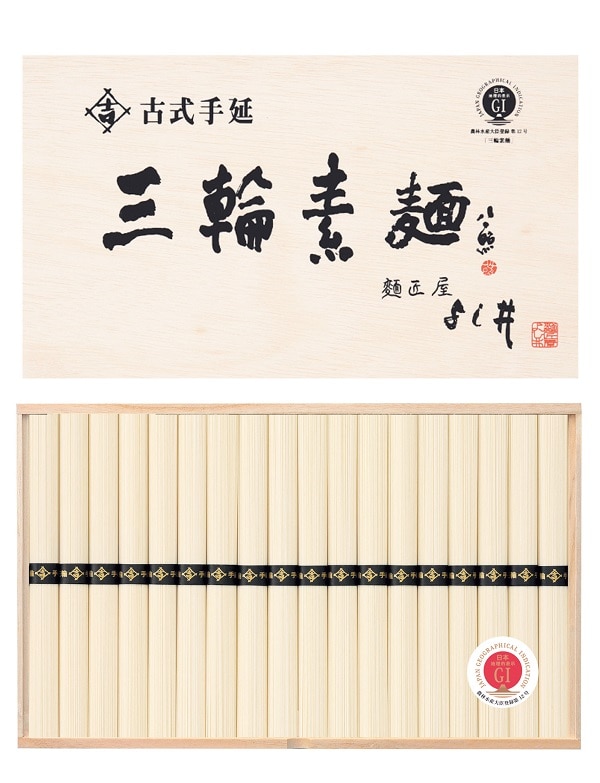 吉
古式手延
三輪素麺
麺匠屋
よし井
JAPAN GEOGRAPHICAL INDICATION
日本
地理的表示
GI
農林水産大臣登録第12号
「三輪素麺」
JAPAN GEOGRAPHICAL INDICATION
日本
地理的表示
GI
農林水産大臣登録第12号